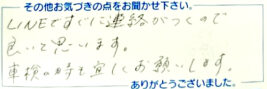 その他お気づきの点をお聞かせ下さい。
LINEですぐに連絡がつくので
良いと思います。
車検の時も宜しくお願いします。
ありがとうございました。